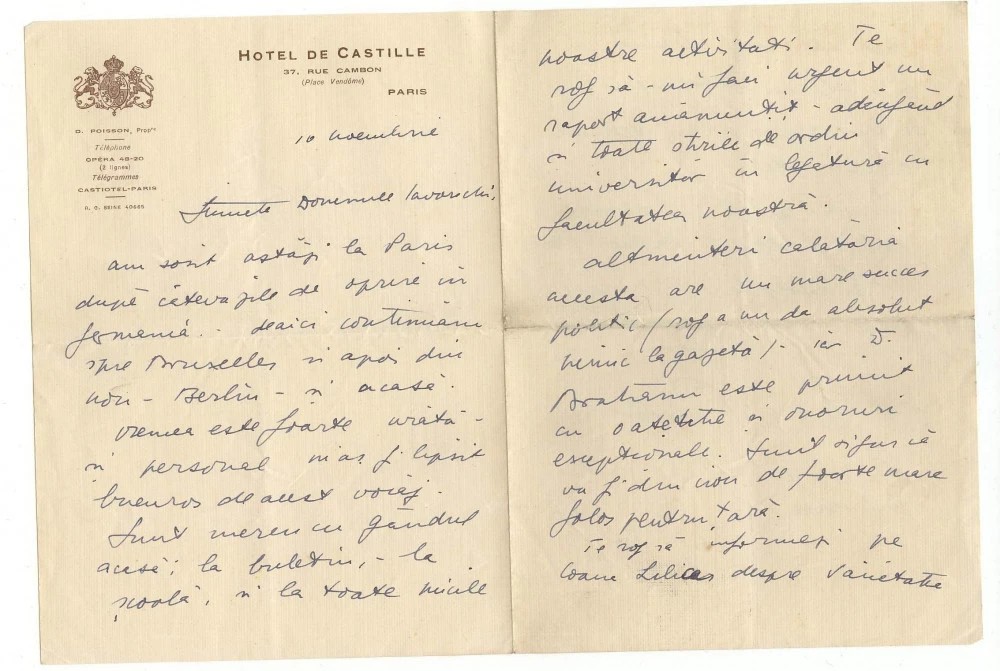 HOTEL DE CASTILLE
37, RUE CAMBON
(Place Vendôme)
PARIS
D. POISSON, Propre
Téléphone
OPÉRA 48-20
(2 lignes)
Télégrammes
CASTIOTEL-PARIS
R. C. SEINE 40685
10 noembrie
Iubite Domnule
am sosit astăzi la Paris
după câteva zile de oprire în
Germania. - deaici continuăm
spre Bruxelles si apoi din
nou - Berlin - si acasă.
Vremea este foarte urâtă -
si personal m'as fi lipsit
bucuros de acest voiaj.
Sunt mereu cu gândul
acasă; la buletin, - la
școală, si la toate micile
noastre activitati. Te
rog să-mi faci urgent un
raport amănuntit - adăugând
si toate stirile de ordin
universitar în legătură cu
facultatea noastră.
altminteri calatoria
acesta are un mare succes
politic (rog a nu da absolut
nimic la gazetă) - iar D.
Bratianu este primit
cu atetie si onoruri
exceptionale. Sunt sigur că
va fi din nou de foarte mare
folos pentru tară.
Te rog să informezi pe
Coana despre varietatie